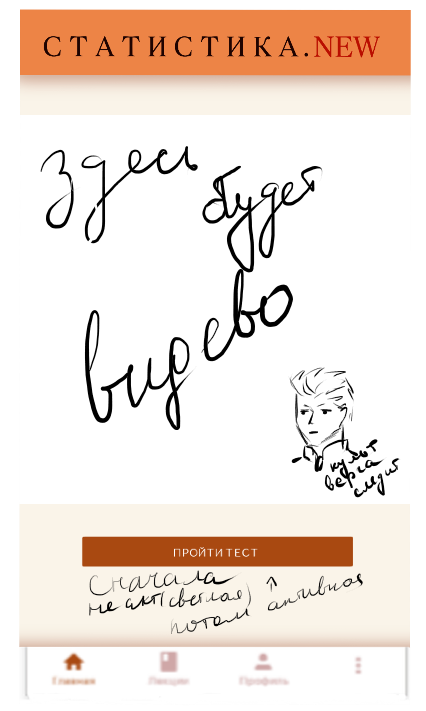 СТАТИСТИКА.NEW
Здесь
будет
видево
культ
верга
следит
ПРОЙТИ ТЕСТ
сначала ↑
не акт (светлая) активная
потом
Главная
Лекции
Профиль